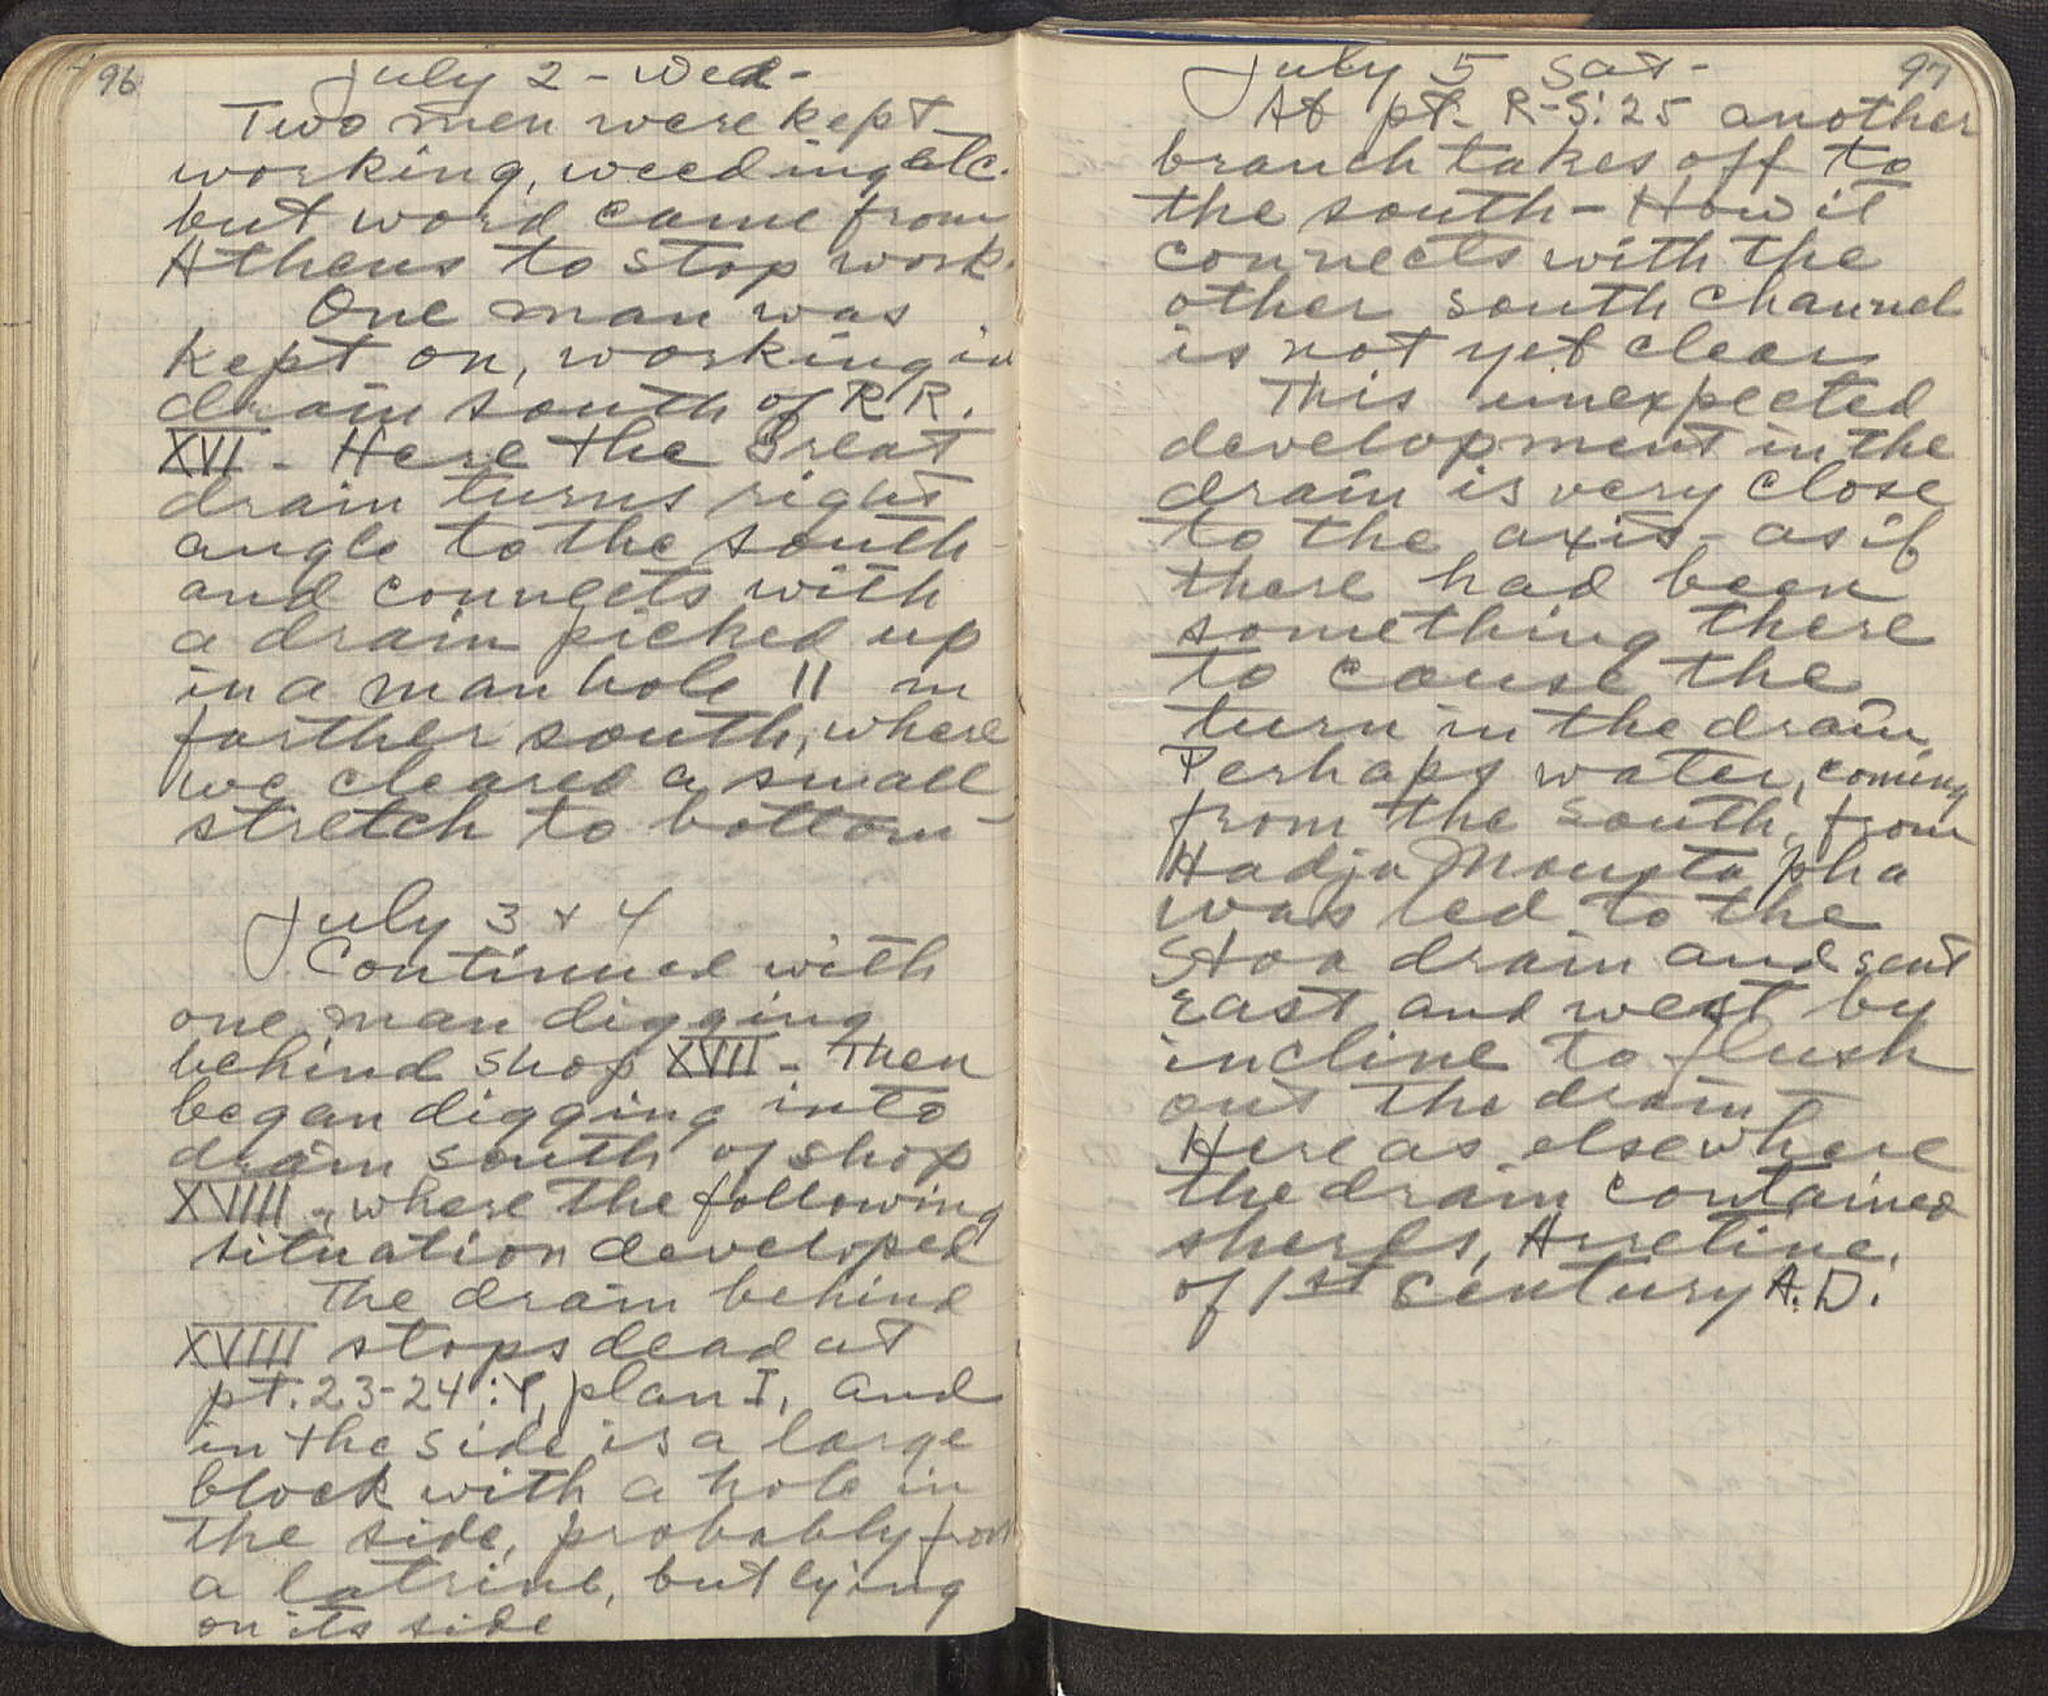 96
July 2 - Wed -
Two men were kept
working, weeding etc.
but word came from
Athens to stop work.
One man was
kept on, working in
drain south of R R.
XVI - Here the Great
drain turns right
angle to the south -
and connects with
a drain picked up
in a man hole 11 m
farther south, where
we cleared a small
stretch to bottom -
July 3 + 4
Continued with
one man digging
behind shop XVII - Then
began digging into
drain south of shop
XVIIII -, where the following
situation developed
The drain behind
XVIIII stops dead at
pt. 23-24 : Y, plan I, and
in the side is a large
block with a hole in
the side, probably from
a latrine, but lying
on its side
97
July 5 Sat -
At pt. R-S: 25 another
branch takes off to
the south - How it
connects with the
other south channel
is not yet clear
This unexpected
development in the
drain is very close
to the axis - as if
there had been
something there
to cause the
turn in the drain.
Perhaps water, coming
from the south, from
Hadji Moustapha
was led to the
Stoa drain and sent
east and west by
incline to flush
out the drain -
Here as elsewhere
the drain contained
sherds, Arretine,
of 1st century A.D.